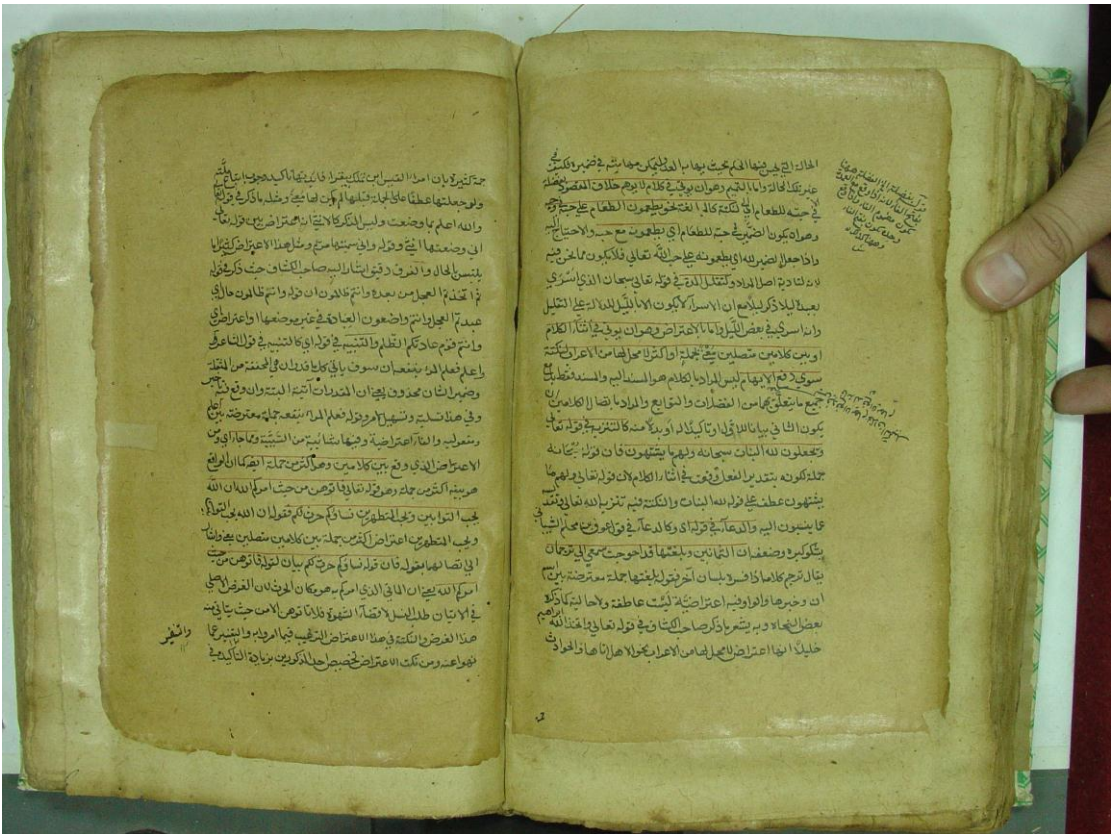 الحالة التي ليس فيها الحكم بحيث
عند تلك الحالة واما بالتتميم وهو ان يؤتى في كلام لا يوهم خلاف المقصود بفضلة
لنكتة كالمبالغة نحو ويطعمون الطعام على حبه في وجه
وهو ان يكون الضمير في حبه للطعام اي يطعمون مع حبه والاحتياج اليه
واذا جعل الضمير لله اي يطعمونه على حب الله تعالى فلا يكون مما نحن فيه
لانه لتادية اصل المراد وكتقليل المدة في قوله تعالى سبحان الذي اسرى
بعبده ليلا ذكر ليلا مع ان الاسراء لا يكون الا بالليل للدلالة على التقليل
وانه اسري في بعض الليل واما بالاعتراض وهو ان يؤتى في اثناء الكلام
او بين كلامين متصلين معنى بجملة او اكثر لا محل لها من الاعراب لنكتة
سوى دفع الايهام ليس المراد بالكلام هو المسند اليه والمسند فقط بل مع
جميع ما يتعلق بهما من الفضلات والتوابع والمراد باتصال الكلامين ان
يكون الثاني بيانا للاول او تاكيدا له او بدلا منه كالتنزيه في قوله تعالى
ويجعلون لله البنات سبحانه ولهم ما يشتهون فان قوله سبحانه
جملة لكونه بتقدير الفعل وقعت في اثناء الكلام لان قوله تعالى ولهم ما
يشتهون عطف على قوله لله البنات والنكتة فيه تنزيه الله تعالى وتقدسه
عما ينسبون اليه والدعاء في قوله اي وكالدعاء في قول عوف بن محلم الشيباني
يشكو كبره وضعفه ان الثمانين وبلغتها قد احوجت سمعي الى ترجمان
يقال ترجم كلامه اذا فسره بلسان آخر فقوله بلغتها جملة معترضة بين اسم
ان وخبرها والواو فيه اعتراضية ليست عاطفة ولا حالية كما ذكره
بعض النحاة وبه يشعر ما ذكر صاحب الكشاف في قوله تعالى واتخذ الله ابراهيم
خليلا انها اعتراض لا محل لها من الاعراب نحو الا هل اتاها والحوادث
جمة كثيرة بان امرأ القيس ابن تملك بيقرا
ولو جعلتها عطفا على الجملة قبلها لم يكن لها معنى ومثله ما ذكر في قوله تعالى
والله اعلم بما وضعت وليس الذكر كالانثى انه اعتراض بين قوله تعالى
اني وضعتها انثى وقوله واني سميتها مريم ومثل هذا الاعتراض كثيرا ما
يلتبس بالحال والفرق دقيق اشار اليه صاحب الكشاف حيث ذكر في قوله
ثم اتخذتم العجل من بعده وانتم ظالمون ان قوله وانتم ظالمون حال اي
عبدتم العجل وانتم واضعون العبادة في غير موضعها او اعتراض اي
وانتم قوم عادتكم الظلم والتنبيه في قوله اي كالتنبيه في قول الشاعر
واعلم فعلم المرء ينفعه ان سوف ياتي كل ما قدرا ان هي المخففة من المثقلة
وضمير الشان محذوف يعني ان المقدرات آتية البتة وان وقع فيه
وفي هذا تسلية وتسهيل للامر وقوله فعلم المرء ينفعه جملة معترضة بين اعلم
ومفعوليه والفاء اعتراضية وفيها شائبة من السببية ومما جاء اي ومن
الاعتراض الذي وقع بين كلامين وهو اكثر من جملة ايضا كما ان الواقع
هو بينه اكثر من جملة وهو قوله تعالى فاتوهن من حيث امركم الله ان الله
يحب التوابين ويحب المتطهرين نساؤكم حرث لكم فقوله ان الله يحب التوابين
ويحب المتطهرين اعتراض اكثر من جملة بين كلامين متصلين معنى واشار
الى اتصالهما بقوله فان قوله نساؤكم حرث لكم بيان لقوله فاتوهن من حيث
امركم الله يعني ان الماتي الذي امركم به هو مكان الحرث لان الغرض الاصلي
في الاتيان طلب النسل لا قضاء الشهوة فلا تاتوهن الا من حيث يتاتى منه
هذا الغرض والنكتة في هذا الاعتراض الترغيب فيما امروا به والتنفير عما
نهوا عنه ومن نكت الاعتراض تخصيص احد المذكورين بزيادة التأكيد في
والتنفير